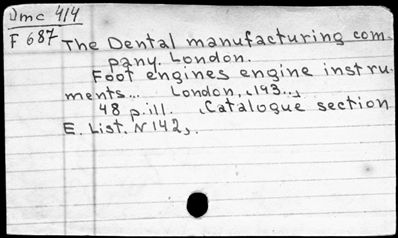 Umc 414
F 687
The Dental manufacturing com-
pany. London.
Foot engines engine instru-
ments... London, 193..,
48 p. ill. Catalogue section
E. List. N 142,.